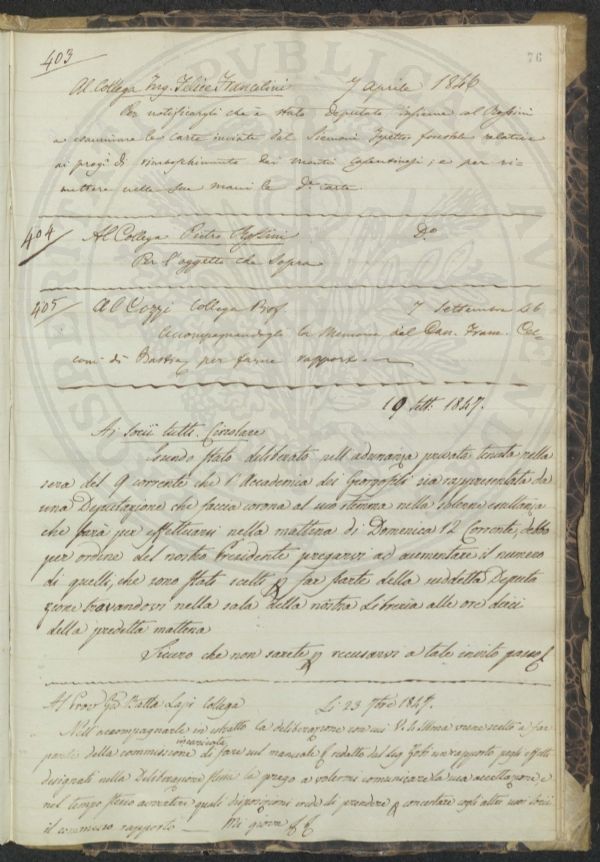 403
76
Al Collega Ing. Felice Francolini 7 aprile 1846
Per notificargli che è stato deputato insieme al
a esaminare le carte inviate dal Ispettor forestale relative
ai progi di rimboschimento dei monti ; e per ri=
mettere nelle sue mani le de carte.
404
Al Collega Pietro Do
Per l'oggetto che sopra
405 Al Cozzi Collega Prof. 7 Settembre 46
Accompagnandogli la Memoria del Fran.
di Bastia per farne rapporto
19 Sett. 1847.
Ai Socii tutti. Circolare
Essendo stato deliberato nell'adunanza privata tenuta nella
sera del 9 corrente che l'Accademia dei Georgofili sia rappresentata da
una Deputazione che faccia corona al suo stemma nella solenne esultanza
che sarà per effettuarsi nella mattina di Domenica 12 Corrente, debbo
per ordine del nostro Presidente pregarvi ad aumentare il numero
di quelli, che sono stati scelti a far parte della suddetta Deputa
zione trovandovi nella sala della nostra Libreria alle ore dieci
della predetta mattina
Sicuro che non sarete p recusarvi a tale invito passo
Al Collega Li 23 1847.
Nell'accompagnarle in estratto la deliberazione con cui V. S. Illma viene scelto a far
parte della commissione incaricata di fare sul manuale redatto dal un rapporto negli effetti
designati nella Deliberazione stessa la prego a volermi comunicare la sua accettazione e
nel tempo stesso quali disposizioni crede di prendere p concertare cogli altri suoi socii
il commesso rapporto Mi giova